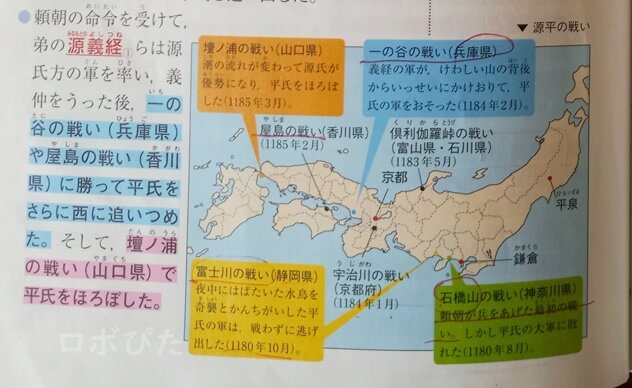 頼朝の命令を受けて，
弟の源義経①らは源
氏方の軍を率い，義
仲をうった後，一の
谷の戦い(兵庫県)
や屋島の戦い(香川
県)に勝って平氏を
さらに西に追いつめ
た。そして，壇ノ浦
の戦い(山口県)で
平氏をほろぼした。
▼源平の戦い
壇ノ浦の戦い(山口県)
潮の流れが変わって源氏が
優勢になり，平氏をほろぼ
した(1185年3月)。
一の谷の戦い(兵庫県)
義経の軍が，けわしい山の背後
からいっせいにかけおりて，平
氏の軍をおそった(1184年2月)。
屋島の戦い(香川県)
(1185年2月)
倶利伽羅峠の戦い
(富山県・石川県)
(1183年5月)
京都
平泉
鎌倉
宇治川の戦い
(京都府)
(1184年1月)
富士川の戦い(静岡県)
夜中にはばたいた水鳥を
奇襲とかんちがいした平
氏の軍は，戦わずに逃げ
出した(1180年10月)。
石橋山の戦い(神奈川県)
頼朝が兵をあげた最初の戦
い。しかし平氏の大軍に敗
れた(1180年8月)。
ロボぴた